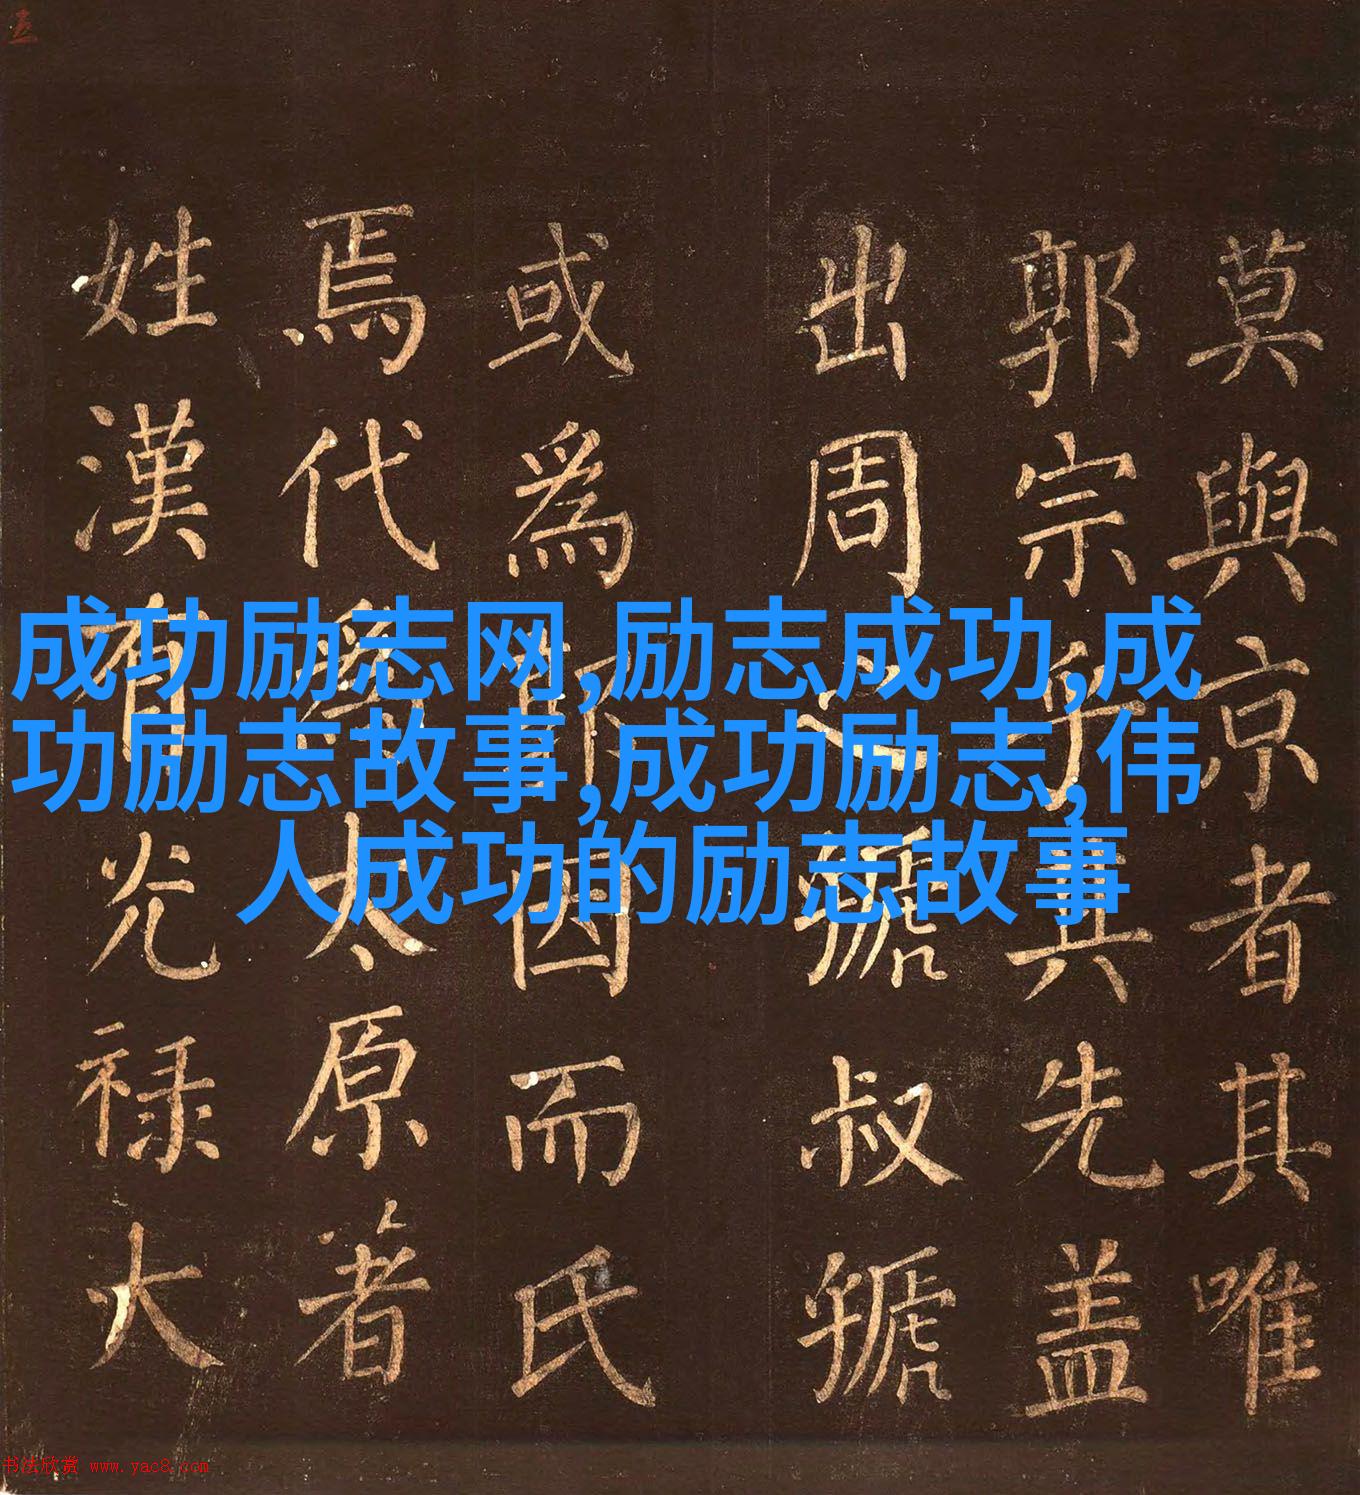 莫與京者其唯
郭宗乎其先盖
出周之虢叔虢
或為郭因而氏
焉代為太原著
姓漢有光禄大
成功励志网,励志成功,成
功励志故事,成功励志,伟
人成功的励志故事
书法欣赏 www.yac8.com